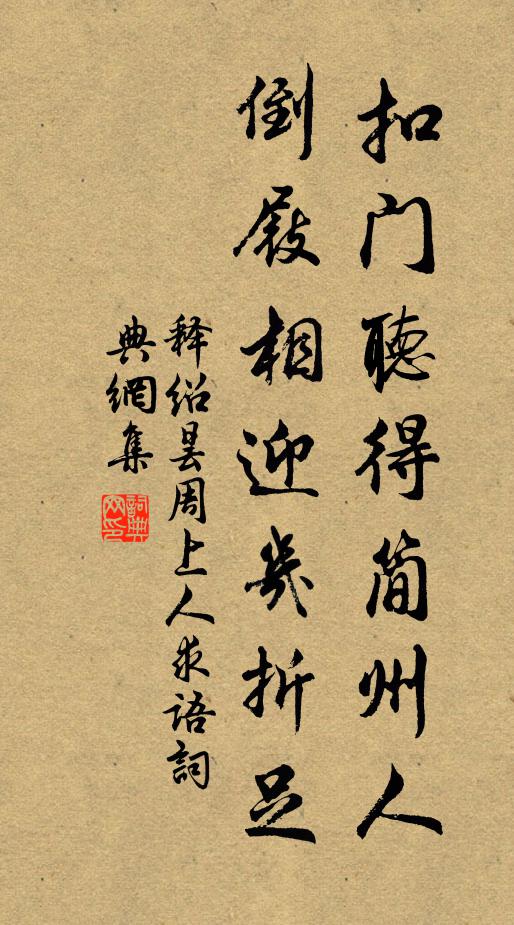 扣门聽得简州人
倒屐相迎幾折足
释绍昙周上人求语詞
典網集
詞典网印